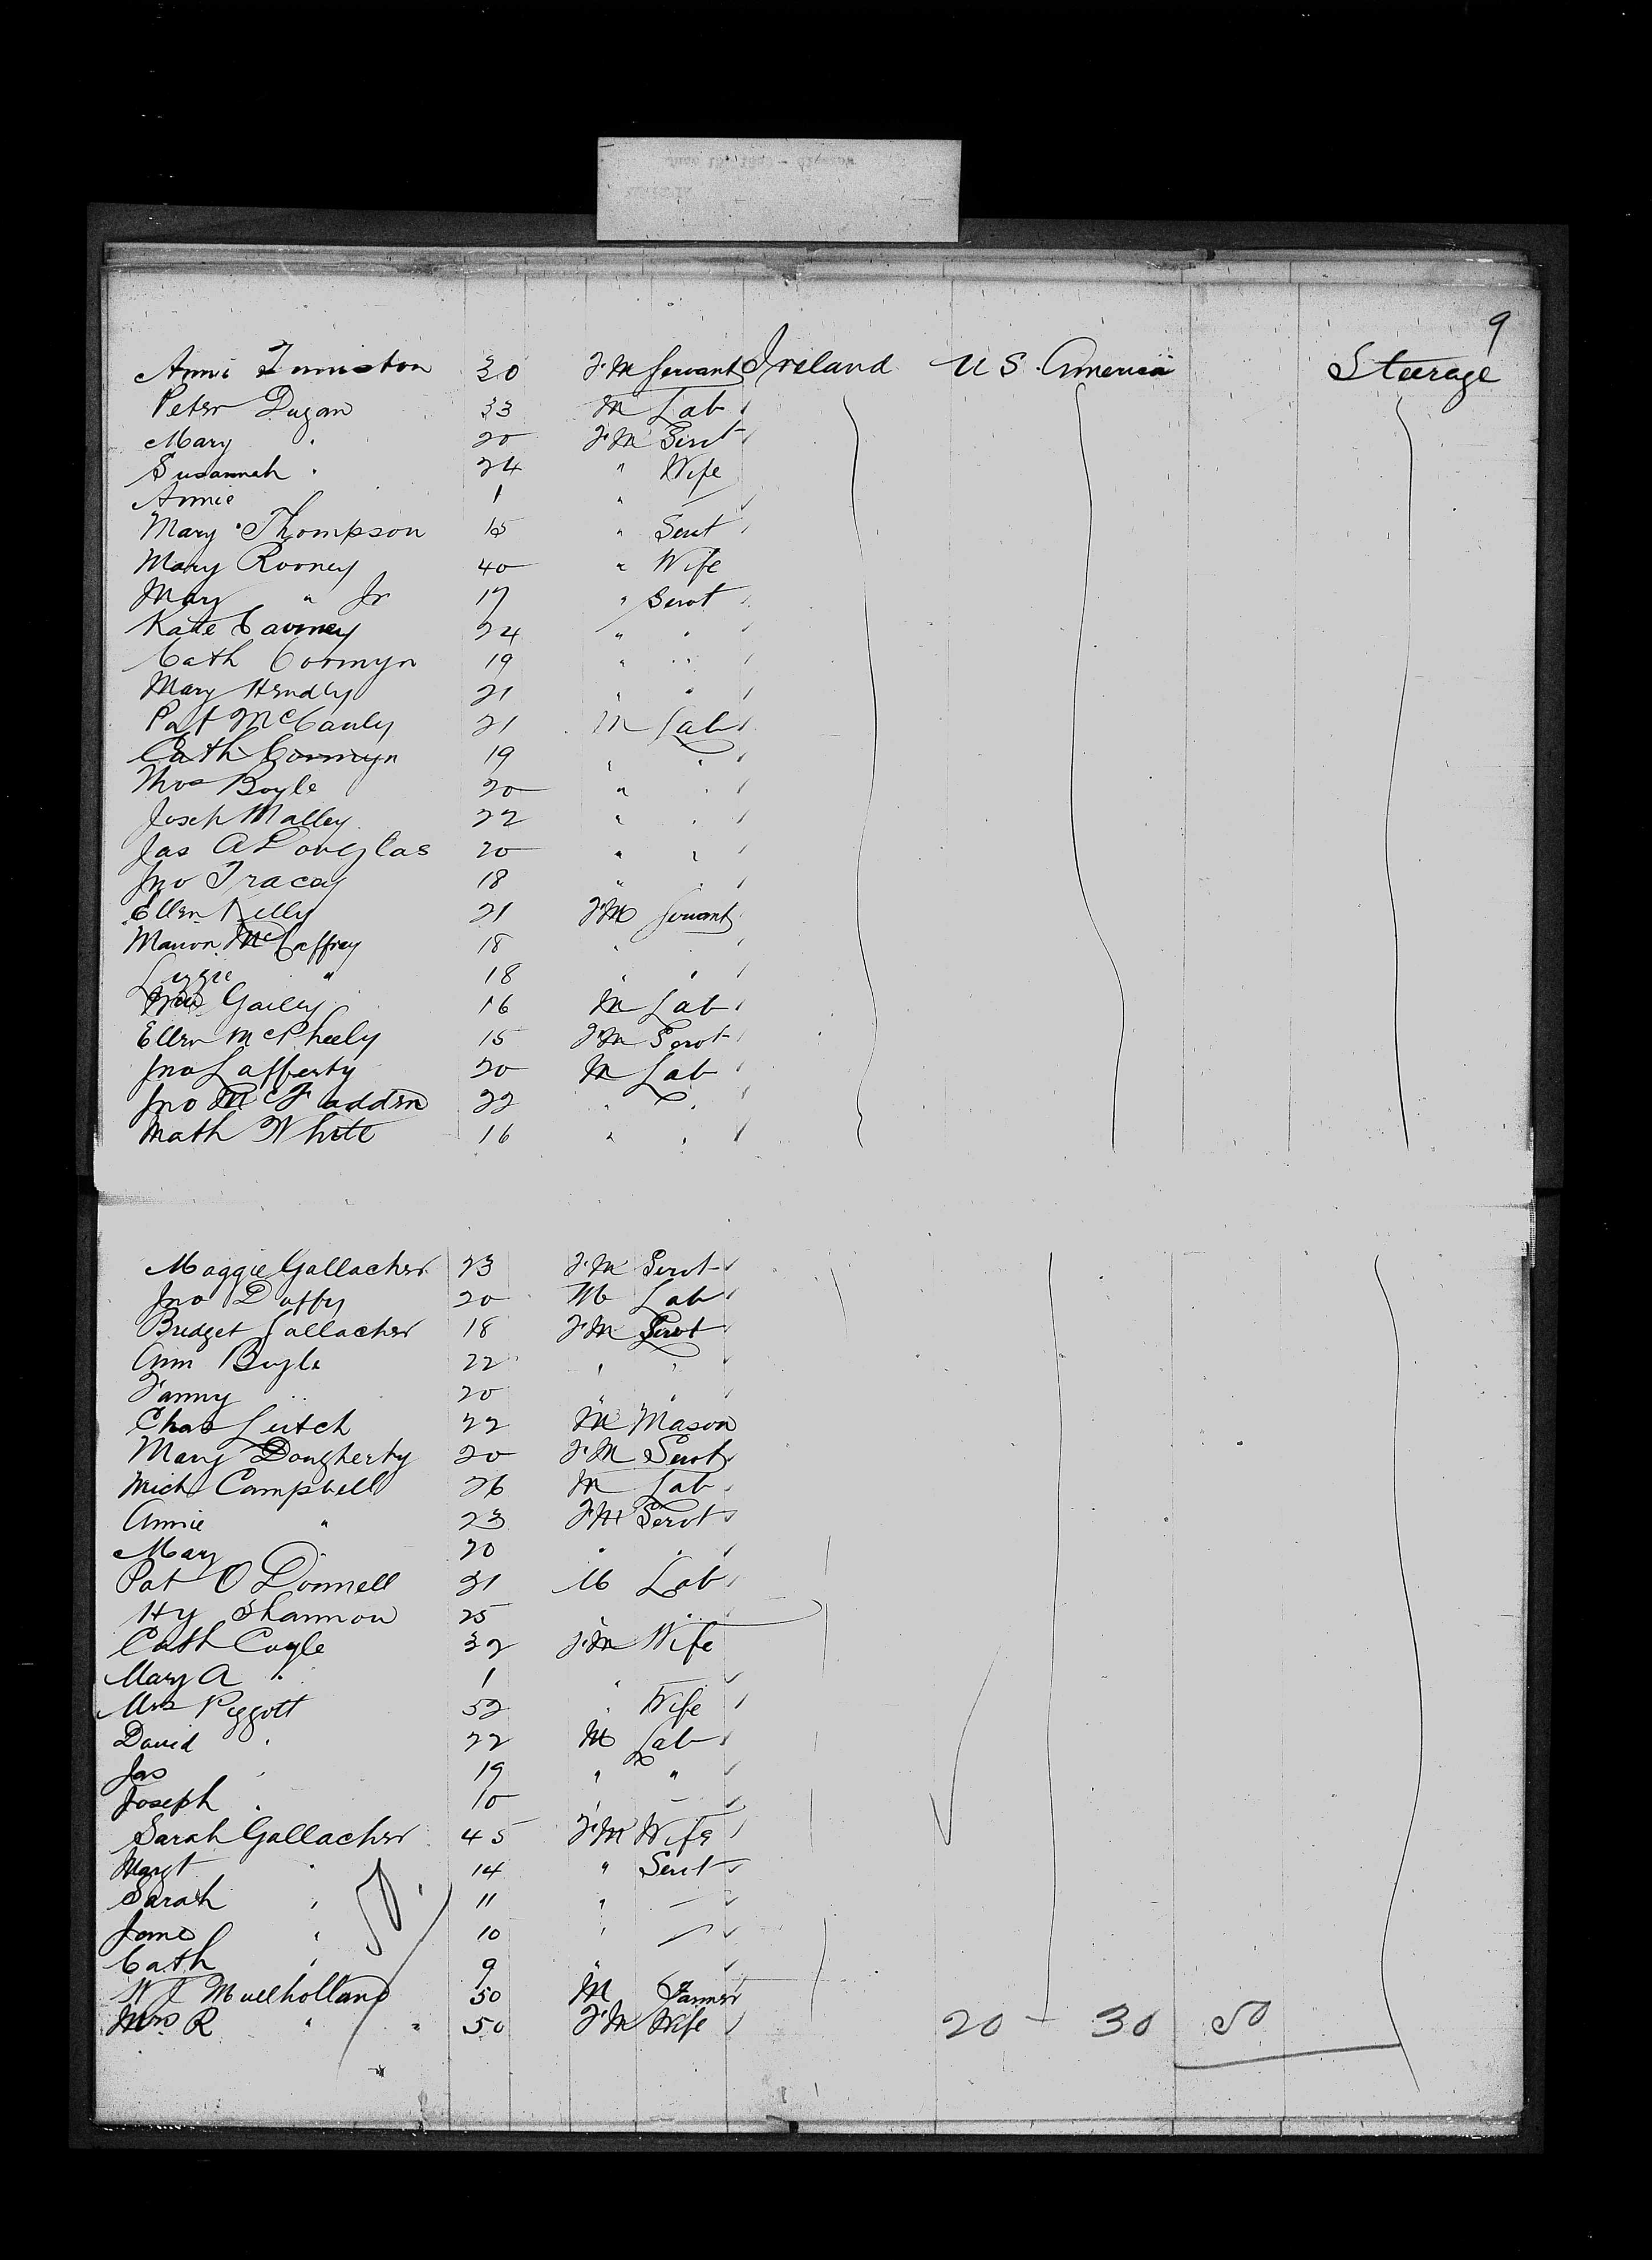 9
Annie 30 F.M Servant Ireland U S. America Steerage
Peter Dugan 33 M Lab
Mary " 20 F.M Servt
Susannah " 24 " Wife
Annie 1 "
Mary Thompson 15 " Servt
Mary Rooney 40 " Wife
Mary " Jr 17 " Servt
Kate 24 " "
Cath Cormyn 19 " "
Mary Hendly 21 " "
Pat McCauly 21 M Lab
Cath Cormyn 19 " "
Thos Boyle 20 " "
Joseph Malley 22 " "
Jas A Douglas 20 " "
Jno Tracey 18 " "
Ellen Kelly 21 F.M Servant
Marion McCaffrey 18 " "
Lizzie " 18 " "
Gailey 16 M Lab
Ellen McPheely 15 F.M Servt
Jno Lafferty 20 M Lab
Jno McFadden 22 " "
Math White 16 " "
Maggie Gallacher 23 F.M Servt
Jno Duffy 20 M Lab
Bridget Gallacher 18 F.M Servt
Ann Boyle 22 " "
Fanny " 20 " "
Chas 22 M Mason
Mary Dougherty 20 F.M Servt
Mich Campbell 26 M Lab
Annie " 23 F.M Servt
Mary 20 " "
Pat O Donnell 31 M Lab
Hy Shannon 25
Cath Coyle 32 F.M Wife
Mary A " 1 "
Mrs Piggott 52 " Wife
David " 22 M Lab
Jas " 19 " "
Joseph " 10 " —
Sarah Gallacher 45 F.M Wife
Margt " 14 " Servt
Sarah " 11 " —
Jane " 10 " —
Cath " 9 "
W J Mullholland 50 M Farmer
Mrs R " " 50 F.M Wife 20 - 30 50